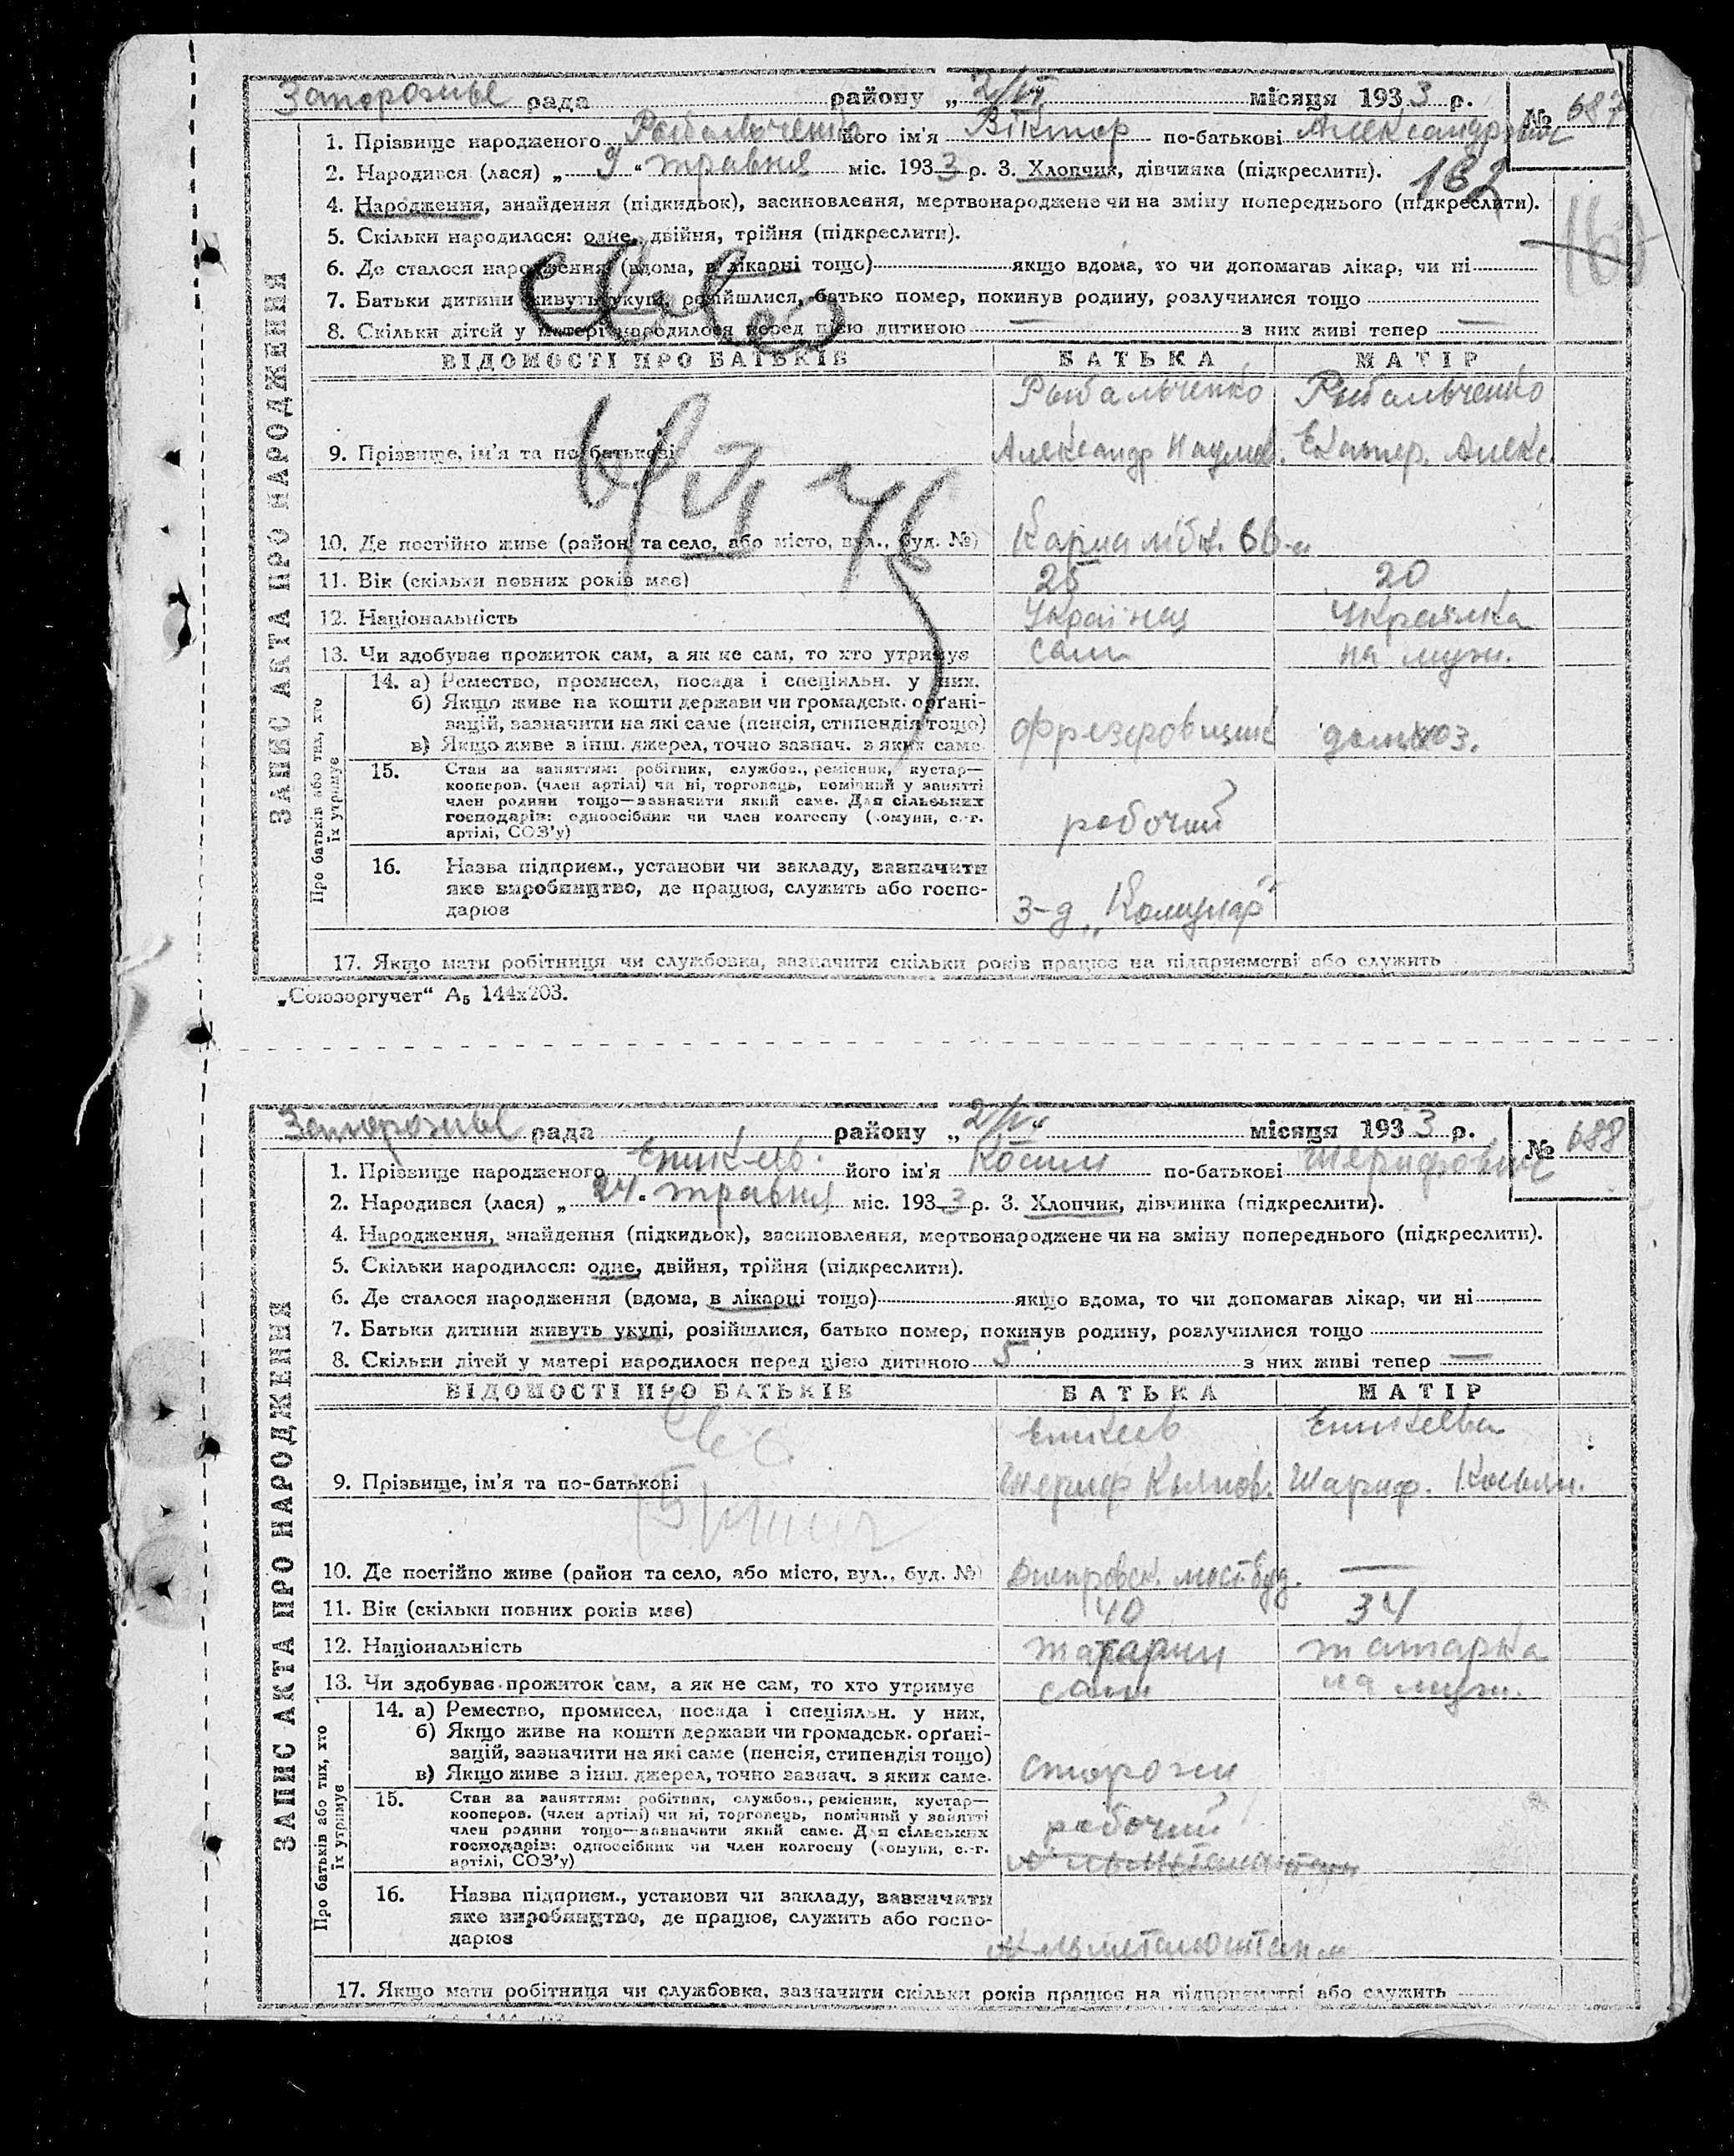 Запорожье рада району „ 2/VI місяця 193 3 р. № 687
1. Прізвище народженого Рыбальченко його ім'я Віктор по-батькові Александрович
2. Народився (лася) „ 9 " травня міс. 193 3 р. 3. Хлопчик, дівчинка (підкреслити).
162
4. Народження, знайдення (підкидьок), засиновлення, мертвонароджене чи на зміну попереднього (підкреслити).
160
5. Скільки народилося: одне, двійня, трійня (підкреслити).
6. Де сталося народження (вдома, в лікарні тощо) якщо вдома, то чи допомагав лікар, чи ні
7. Батьки дитини живуть укупі, розійшлися, батько помер, покинув родину, розлучилися тощо
8. Скільки дітей у матері народилося перед цією дитиною — з них живі тепер —
ЗАПИС АКТА ПРО НАРОДЖЕННЯ
ВІДОМОСТІ ПРО БАТЬКІВ БАТЬКА МАТІР
Рыбальченко Рыбальченко
9. Прізвище, ім'я та по-батькові Александр Наумов. Екатер. Алекс.
10. Де постійно живе (район та село, або місто, вул., буд. №)
11. Вік (скільки повних років має) 25 20
12. Національність Українец Українка
13. Чи здобуває прожиток сам, а як не сам, то хто утримує сам на муж.
Про батьків або тих, хто їх утримує
14. а) Ремество, промисел, посада і спеціяльн. у них.
б) Якщо живе на кошти держави чи громадськ. орґані-
зацій, зазначити на які саме (пенсія, стипендія тощо)
в) Якщо живе з інш. джерел, точно зазнач. з яких саме.
фрезеровщик домхоз.
15. Стан за заняттям: робітник, службов., ремісник, кустар—
кооперов. (член артілі) чи ні, торговець, помічний у занятті
член родини тощо—зазначити який саме. Для сільських
господарів: одноосібник чи член колгоспу (комуни, с.-г.
артілі, СОЗ'у) робочий
16. Назва підприєм., установи чи закладу, зазначити
яке виробництво, де працює, служить або госпо-
дарює з-д „Комунар"
17. Якщо мати робітниця чи службовка, зазначити скільки років працює на підприємстві або служить
„Союзоргучет" А₅ 144х203.
Запорожье рада району „ 2/VI місяця 193 3 р. № 688
1. Прізвище народженого Еникеев. його ім'я Косим по-батькові Шерифович
2. Народився (лася) „ 24 " травня міс. 193 3 р. 3. Хлопчик, дівчинка (підкреслити).
4. Народження, знайдення (підкидьок), засиновлення, мертвонароджене чи на зміну попереднього (підкреслити).
5. Скільки народилося: одне, двійня, трійня (підкреслити).
6. Де сталося народження (вдома, в лікарні тощо) якщо вдома, то чи допомагав лікар, чи ні
7. Батьки дитини живуть укупі, розійшлися, батько помер, покинув родину, розлучилися тощо
8. Скільки дітей у матері народилося перед цією дитиною 5 з них живі тепер —
ЗАПИС АКТА ПРО НАРОДЖЕННЯ
ВІДОМОСТІ ПРО БАТЬКІВ БАТЬКА МАТІР
Еникеев Еникеева
9. Прізвище, ім'я та по-батькові Шериф Шариф.
10. Де постійно живе (район та село, або місто, вул., буд. №) Днепровск. мостбуд. —
11. Вік (скільки повних років має) 40 34
12. Національність татарин татарка
13. Чи здобуває прожиток сам, а як не сам, то хто утримує сам на муж.
Про батьків або тих, хто їх утримує
14. а) Ремество, промисел, посада і спеціяльн. у них.
б) Якщо живе на кошти держави чи громадськ. орґані-
зацій, зазначити на які саме (пенсія, стипендія тощо)
в) Якщо живе з інш. джерел, точно зазнач. з яких саме.
сторож
15. Стан за заняттям: робітник, службов., ремісник, кустар—
кооперов. (член артілі) чи ні, торговець, помічний у занятті
член родини тощо—зазначити який саме. Для сільських
господарів: одноосібник чи член колгоспу (комуни, с.-г.
артілі, СОЗ'у) робочий
16. Назва підприєм., установи чи закладу, зазначити
яке виробництво, де працює, служить або госпо-
дарює
17. Якщо мати робітниця чи службовка, зазначити скільки років працює на підприємстві або служить